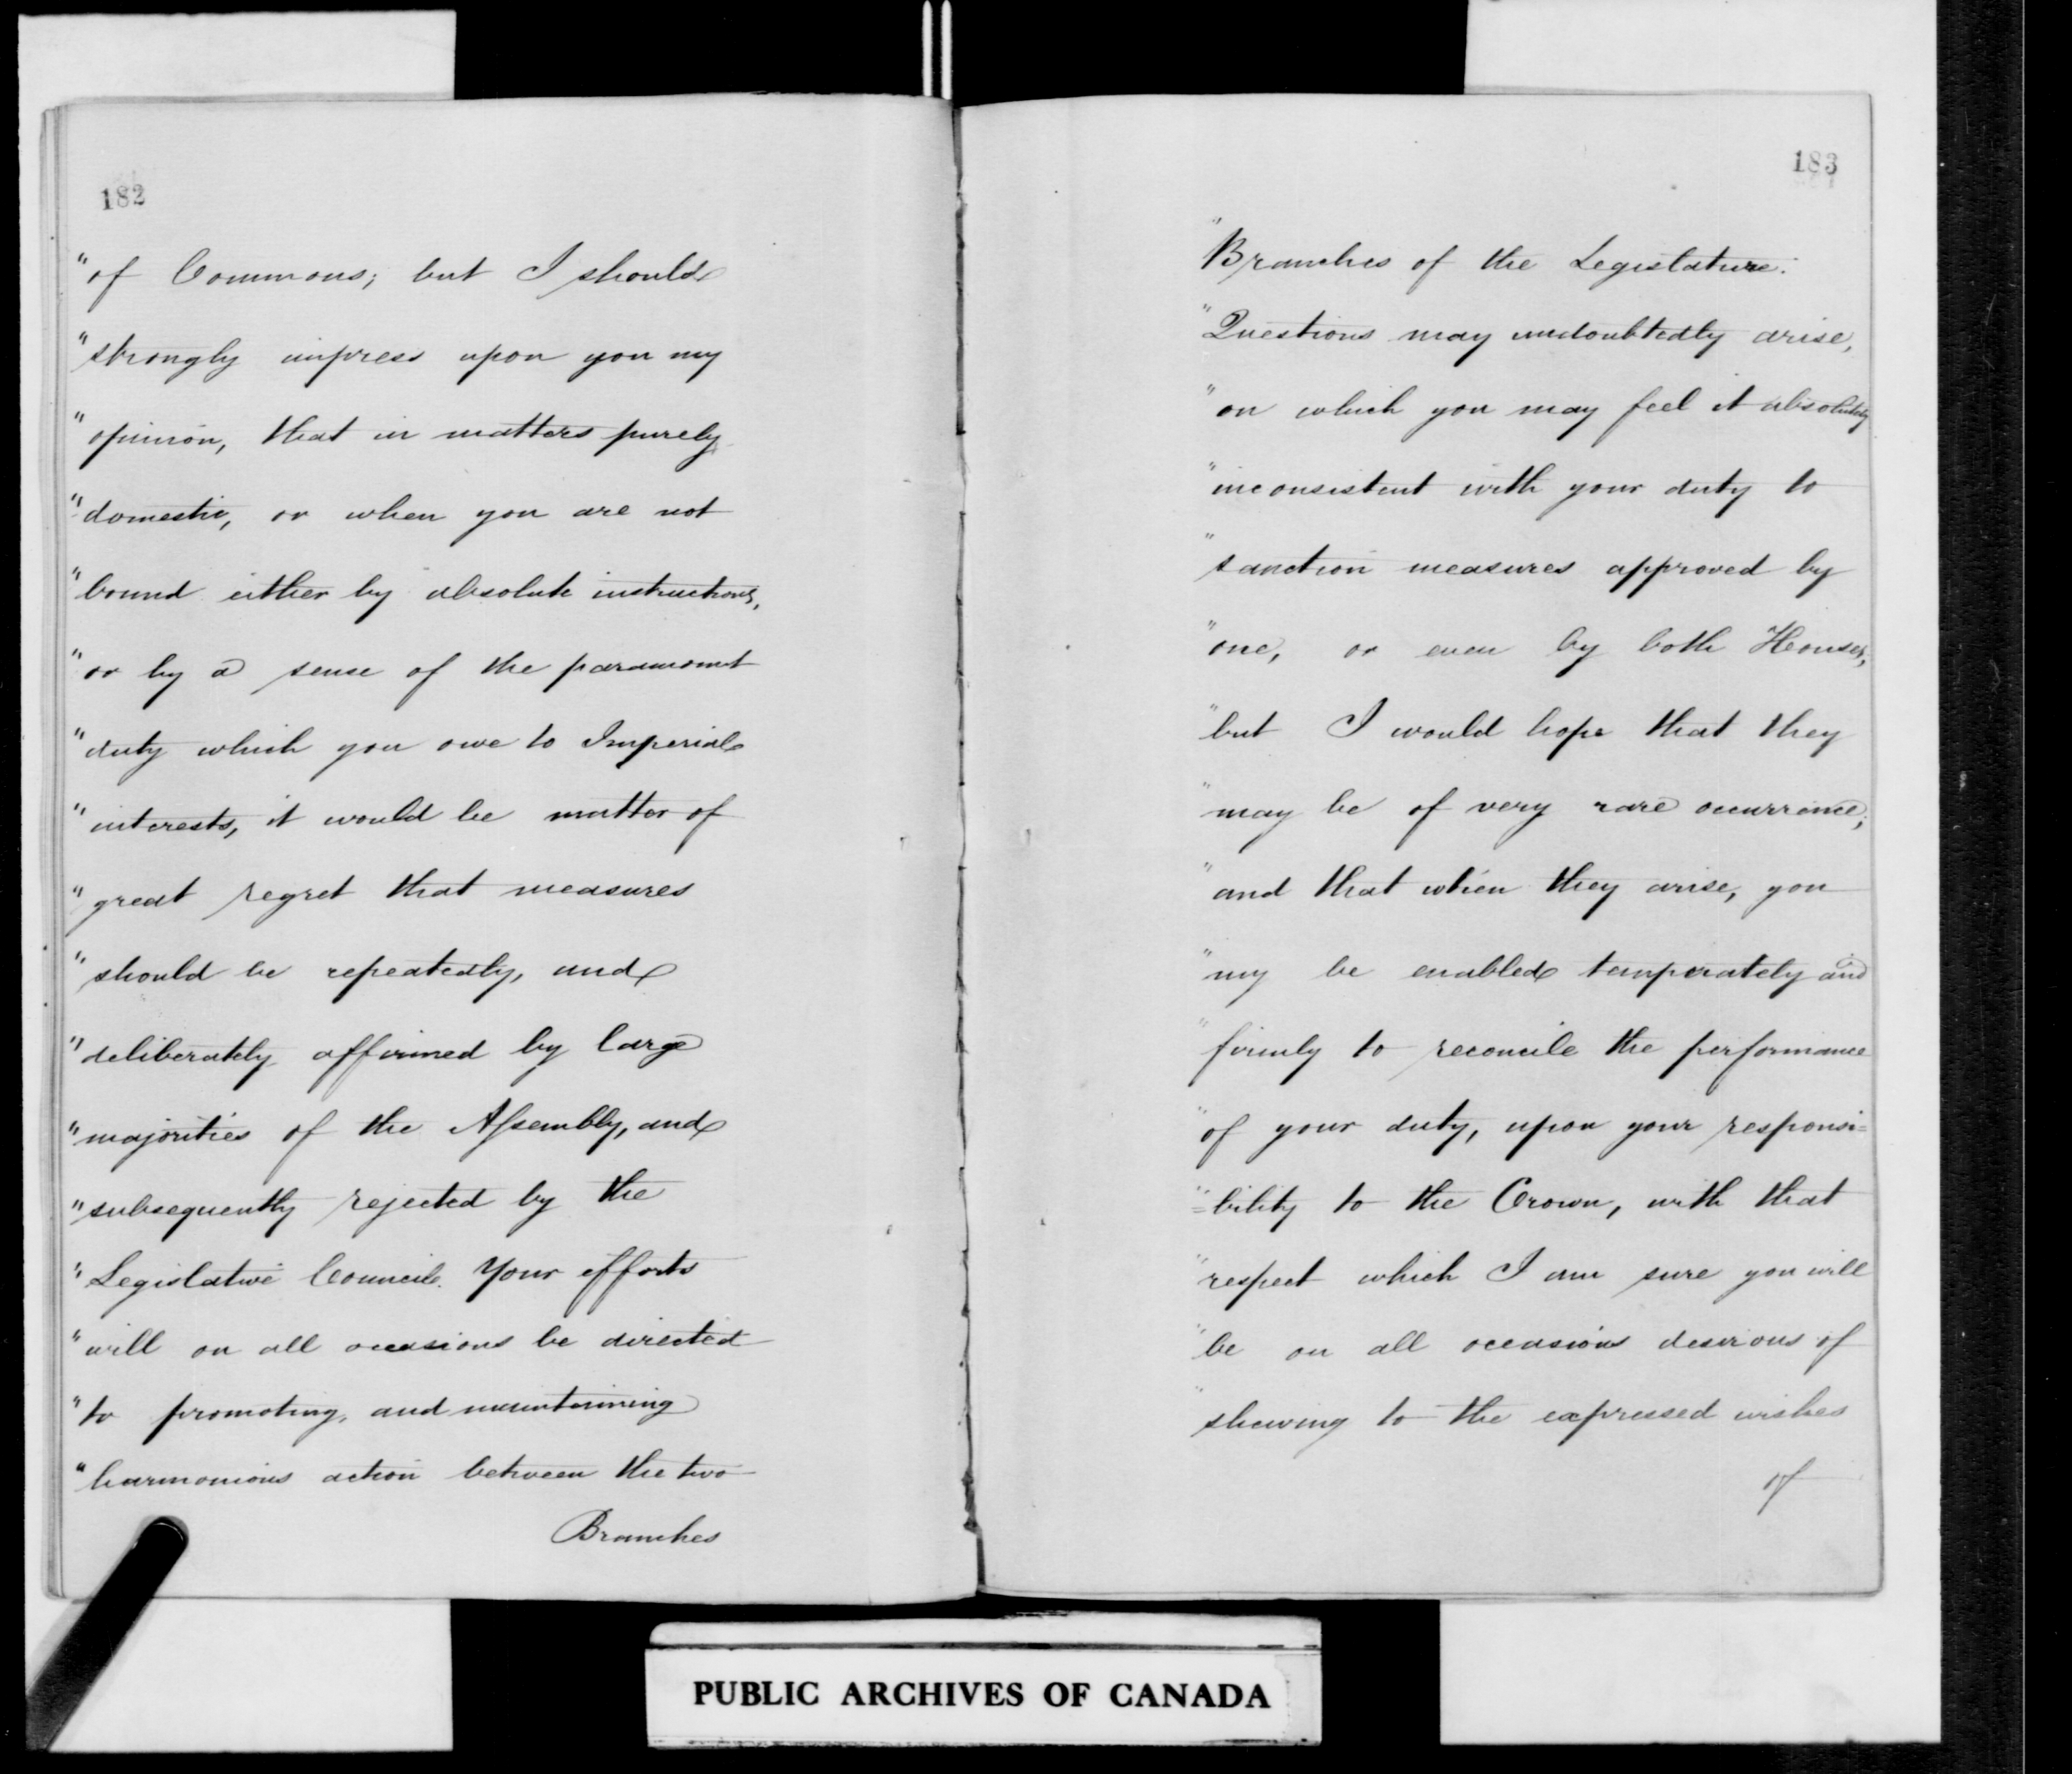 182
"of Commons; but I should
"strongly impress upon you my
"opinion, that in matters purely
"domestic, or when you are not
"bound either by absolute instructions,
"or by a sense of the paramount
"duty which you owe to Imperial
"interests, it would be matter of
"great regret that measures
"should be repeatedly, and
"deliberately affirmed by large
"majorities of the Assembly, and
"subsequently rejected by the
"Legislative Council. Your efforts
"will on all occasions be directed
"to promoting, and maintaining
"harmonious action between the two
Branches
183
"Branches of the Legislature.
"Questions may undoubtedly arise,
"on which you may feel it absolutely
"inconsistent with your duty to
"sanction measures approved by
"one, or even by both Houses,
"but I would hope that they
"may be of very rare occurrence;
"and that when they arise, you
"my be enabled temperately and
"firmly to reconcile the performance
"of your duty, upon your responsi=
"=bility to the Crown, with that
"respect which I am sure you will
"be on all occasions desirous of
"shewing to the expressed wishes
of
PUBLIC ARCHIVES OF CANADA